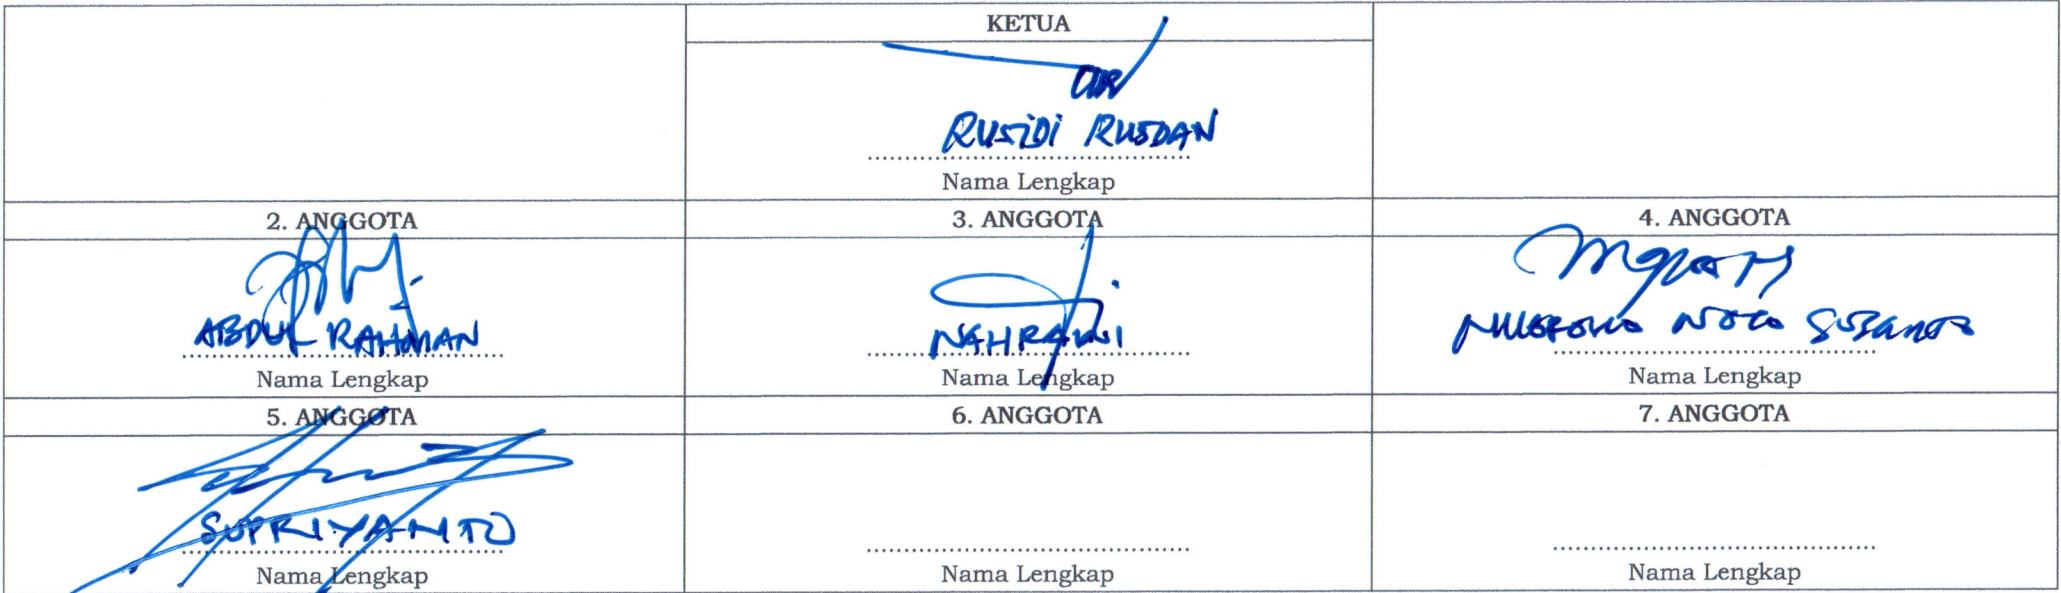 KETUA
RUSIDI RUSDAN
Nama Lengkap
2. ANGGOTA 3. ANGGOTA 4. ANGGOTA
ABDUL RAHMAN NAHRAWI NUGROHO NOTO SUSANTO
Nama Lengkap Nama Lengkap Nama Lengkap
5. ANGGOTA 6. ANGGOTA 7. ANGGOTA
SUPRIYANTO
Nama Lengkap Nama Lengkap Nama Lengkap